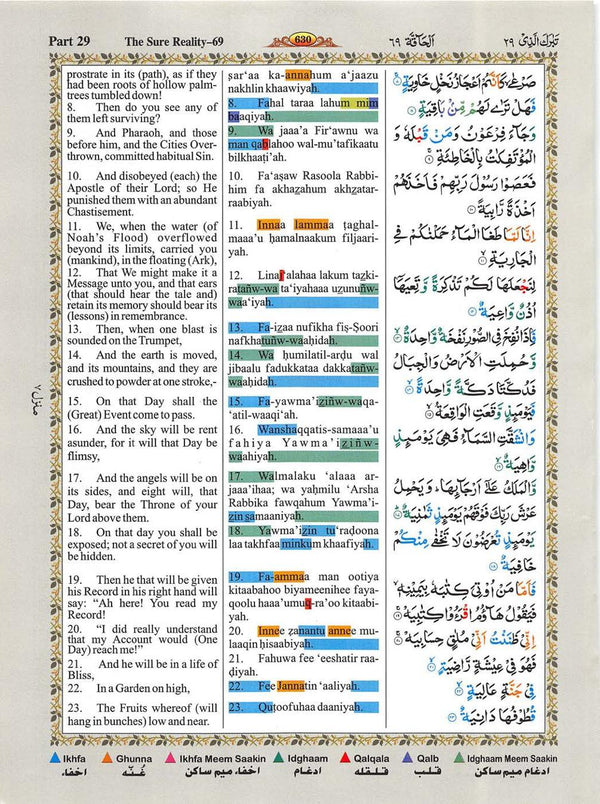 Part 29
The Sure Reality–69
630
اَلْحَآقَّة ٦٩
تَبٰرَكَ الَّذِىْ ٢٩
prostrate in its (path), as if they
had been roots of hollow palm-
trees tumbled down!
8. Then do you see any of
them left surviving?
9. And Pharaoh, and those
before him, and the Cities Over-
thrown, committed habitual Sin.
10. And disobeyed (each) the
Apostle of their Lord; so He
punished them with an abundant
Chastisement.
11. We, when the water (of
Noah's Flood) overflowed
beyond its limits, carried you
(mankind), in the floating (Ark),
12. That We might make it a
Message unto you, and that ears
(that should hear the tale and)
retain its memory should bear its
(lessons) in remembrance.
13. Then, when one blast is
sounded on the Trumpet,
14. And the earth is moved,
and its mountains, and they are
crushed to powder at one stroke,-
15. On that Day shall the
(Great) Event come to pass.
16. And the sky will be rent
asunder, for it will that Day be
flimsy,
17. And the angels will be on
its sides, and eight will, that
Day, bear the Throne of your
Lord above them.
18. On that day you shall be
exposed; not a secret of you will
be hidden.
19. Then he that will be given
his Record in his right hand will
say: “Ah here! You read my
Record!
20. “I did really understand
that my Account would (One
Day) reach me!”
21. And he will be in a life of
Bliss,
22. In a Garden on high,
23. The Fruits whereof (will
hang in bunches) low and near.
ṣar‘aa ka-annahum a‘jaazu
nakhlin khaawiyah.
8. Fahal taraa lahum mim
baaqiyah.
9. Wa jaaa’a Fir‘awnu wa
man qablahoo wal-mu’tafikaatu
bilkhaaṭi’ah.
10. Fa‘aṣaw Rasoola Rabbi-
him fa akhaẓahum akhẓatar-
raabiyah.
11. Innaa lammaa ṭaghal-
maaa’u ḥamalnaakum filjaari-
yah.
12. Linaj‘alahaa lakum taẓki-
ratañw-wa ta‘iyahaaa uẓunuñw-
waa‘iyah.
13. Fa-izaa nufikha fiṣ-Ṣoori
nafkhatuñw-waaḥidah.
14. Wa ḥumilatil-arḍu wal
jibaalu fadukkataa dakkatañw-
waaḥidah.
15. Fa-yawma’iziñw-waqa-
‘atil-waaqi‘ah.
16. Wanshaqqatis-samaaa’u
fahiya Yawma’iziñw-
waahiyah.
17. Walmalaku ‘alaaa ar-
jaaa’ihaa; wa yaḥmilu ‘Arsha
Rabbika fawqahum Yawma’i-
zin ṣamaaniyah.
18. Yawma’izin tu‘raḍoona
laa takhfaa minkum khaafiyah.
19. Fa-ammaa man ootiya
kitaabahoo biyameenihee faya-
qoolu haaa’umuq-ra’oo kitaabi-
yah.
20. Innee ẓanantu annee mu-
laaqin ḥisaabiyah.
21. Fahuwa fee ‘eeshatir raa-
ḍiyah.
22. Fee Jannatin ‘aaliyah.
23. Quṭoofuhaa daaniyah.
صَرْعٰى كَاَنَّهُمْ اَعْجَازُ نَخْلٍ خَاوِيَةٍ ٧
فَهَلْ تَرٰى لَهُمْ مِّنْۢ بَاقِيَةٍ ٨
وَجَآءَ فِرْعَوْنُ وَمَنْ قَبْلَهٗ وَ
الْمُؤْتَفِكٰتُ بِالْخَاطِئَةِ ٩
فَعَصَوْا رَسُوْلَ رَبِّهِمْ فَاَخَذَهُمْ
اَخْذَةً رَّابِيَةً ١٠
اِنَّا لَمَّا طَغَا الْمَآءُ حَمَلْنٰكُمْ فِى
الْجَارِيَةِ ١١
لِنَجْعَلَهَا لَكُمْ تَذْكِرَةً وَّتَعِيَهَآ
اُذُنٌ وَّاعِيَةٌ ١٢
فَاِذَا نُفِخَ فِى الصُّوْرِ نَفْخَةٌ وَّاحِدَةٌ ١٣
وَّحُمِلَتِ الْاَرْضُ وَالْجِبَالُ
فَدُكَّتَا دَكَّةً وَّاحِدَةً ١٤
فَيَوْمَئِذٍ وَّقَعَتِ الْوَاقِعَةُ ١٥
وَانْشَقَّتِ السَّمَآءُ فَهِىَ يَوْمَئِذٍ
وَّاهِيَةٌ ١٦
وَّالْمَلَكُ عَلٰٓى اَرْجَآئِهَا ؕ وَيَحْمِلُ
عَرْشَ رَبِّكَ فَوْقَهُمْ يَوْمَئِذٍ ثَمٰنِيَةٌ ١٧
يَوْمَئِذٍ تُعْرَضُوْنَ لَا تَخْفٰى مِنْكُمْ
خَافِيَةٌ ١٨
فَاَمَّا مَنْ اُوْتِىَ كِتٰبَهٗ بِيَمِيْنِهٖ ۙ
فَيَقُوْلُ هَآؤُمُ اقْرَءُوْا كِتٰبِيَهْ ١٩
اِنِّىْ ظَنَنْتُ اَنِّىْ مُلٰقٍ حِسَابِيَهْ ٢٠
فَهُوَ فِىْ عِيْشَةٍ رَّاضِيَةٍ ٢١
فِىْ جَنَّةٍ عَالِيَةٍ ٢٢
قُطُوْفُهَا دَانِيَةٌ ٢٣
منزل ٧
Ikhfa
Ghunna
Ikhfa Meem Saakin
Idghaam
Qalqala
Qalb
Idghaam Meem Saakin
اخفاء
غُنّه
اخفاء ميم ساكن
ادغام
قلقله
قلب
ادغام ميم ساكن